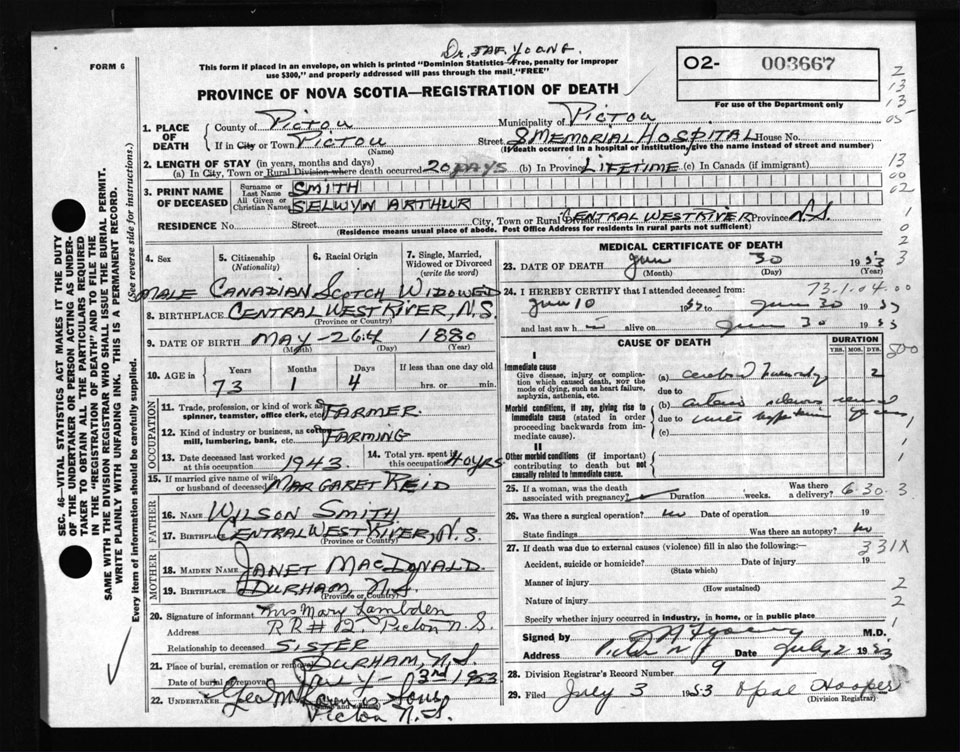 Dr. JAF. YOUNG.
FORM 6
This form if placed in an envelope, on which is printed "Dominion Statistics—Free, penalty for improper
use $300," and properly addressed will pass through the mail, "FREE"
O2- 003667
For use of the Department only
PROVINCE OF NOVA SCOTIA—REGISTRATION OF DEATH
1. PLACE OF DEATH
County of PICTOU Municipality of PICTOU
If in City or Town PICTOU (Name) Street MEMORIAL HOSPITAL House No.
(If death occurred in a hospital or institution, give the name instead of street and number)
2. LENGTH OF STAY (in years, months and days)
(a) In City, Town or Rural Division where death occurred 20 DAYS (b) In Province LIFETIME (c) In Canada (if immigrant)
3. PRINT NAME OF DECEASED
Surname or Last Name SMITH
All Given or Christian Names SELWYN ARTHUR
RESIDENCE No. Street City, Town or Rural Division CENTRAL WEST RIVER Province N.S.
(Residence means usual place of abode. Post Office Address for residents in rural parts not sufficient)
4. Sex
5. Citizenship (Nationality)
6. Racial Origin
7. Single, Married, Widowed or Divorced (write the word)
MALE CANADIAN SCOTCH WIDOWED
8. BIRTHPLACE CENTRAL WEST RIVER, N.S.
(Province or Country)
9. DATE OF BIRTH MAY – 26th 1880
(Month) (Day) (Year)
10. AGE in Years Months Days If less than one day old
73 1 4 hrs. or min.
OCCUPATION
11. Trade, profession, or kind of work as spinner, teamster, office clerk, etc. FARMER.
12. Kind of industry or business, as cotton mill, lumbering, bank, etc. FARMING
13. Date deceased last worked at this occupation 1943.
14. Total yrs. spent in this occupation 40 YRS.
15. If married give name of wife or husband of deceased MARGARET REID
FATHER
16. NAME WILSON SMITH
17. BIRTHPLACE CENTRAL WEST RIVER, N.S.
(Province or Country)
MOTHER
18. MAIDEN NAME JANET MACDONALD.
19. BIRTHPLACE DURHAM, N.S.
(Province or Country)
20. Signature of informant Mrs Mary Lambden
Address RR# 2, Pictou N.S.
Relationship to deceased SISTER
21. Place of burial, cremation or removal DURHAM, N.S.
Date of burial or removal 3rd 1953
22. UNDERTAKER Sons
(Name and address)
Pictou N.S.
MEDICAL CERTIFICATE OF DEATH
23. DATE OF DEATH June 30 1953
(Month) (Day) (Year)
24. I HEREBY CERTIFY that I attended deceased from: 73-1-04-00
June 10 1953 to June 30 1953
and last saw h alive on June 30 1953
CAUSE OF DEATH
DURATION
YRS. MOS. DYS.
I
Immediate cause
Give disease, injury or complication which caused death, NOT the mode of dying, such as heart failure, asphyxia, asthenia, etc.
(a) 2
due to
Morbid conditions, if any, giving rise to immediate cause (stated in order proceeding backwards from immediate cause).
(b)
due to
(c)
II
Other morbid conditions (if important) contributing to death but not causally related to immediate cause.
25. If a woman, was the death associated with pregnancy? Duration weeks. Was there a delivery? 6.30.3
26. Was there a surgical operation? no Date of operation 19
State findings Was there an autopsy? no
27. If death was due to external causes (violence) fill in also the following:— 331X
Accident, suicide or homicide? Date 19
(State which)
Manner of injury
(How sustained)
Nature of injury
Specify whether injury occurred in industry, in home, or in public place
Signed by M.D.
Address Date July 2 1953
28. Division Registrar's Record Number 9
29. Filed July 3 1953 Opal Hooper
(Division Registrar)
SEC. 46—VITAL STATISTICS ACT MAKES IT THE DUTY
OF THE UNDERTAKER OR PERSON ACTING AS UNDERTAKER
TO OBTAIN ALL THE PARTICULARS REQUIRED
IN THE "REGISTRATION OF DEATH" AND TO FILE THE
SAME WITH THE DIVISION REGISTRAR WHO SHALL ISSUE THE BURIAL PERMIT.
WRITE PLAINLY WITH UNFADING INK. THIS IS A PERMANENT RECORD.
Every item of information should be carefully supplied. (See reverse side for instructions.)